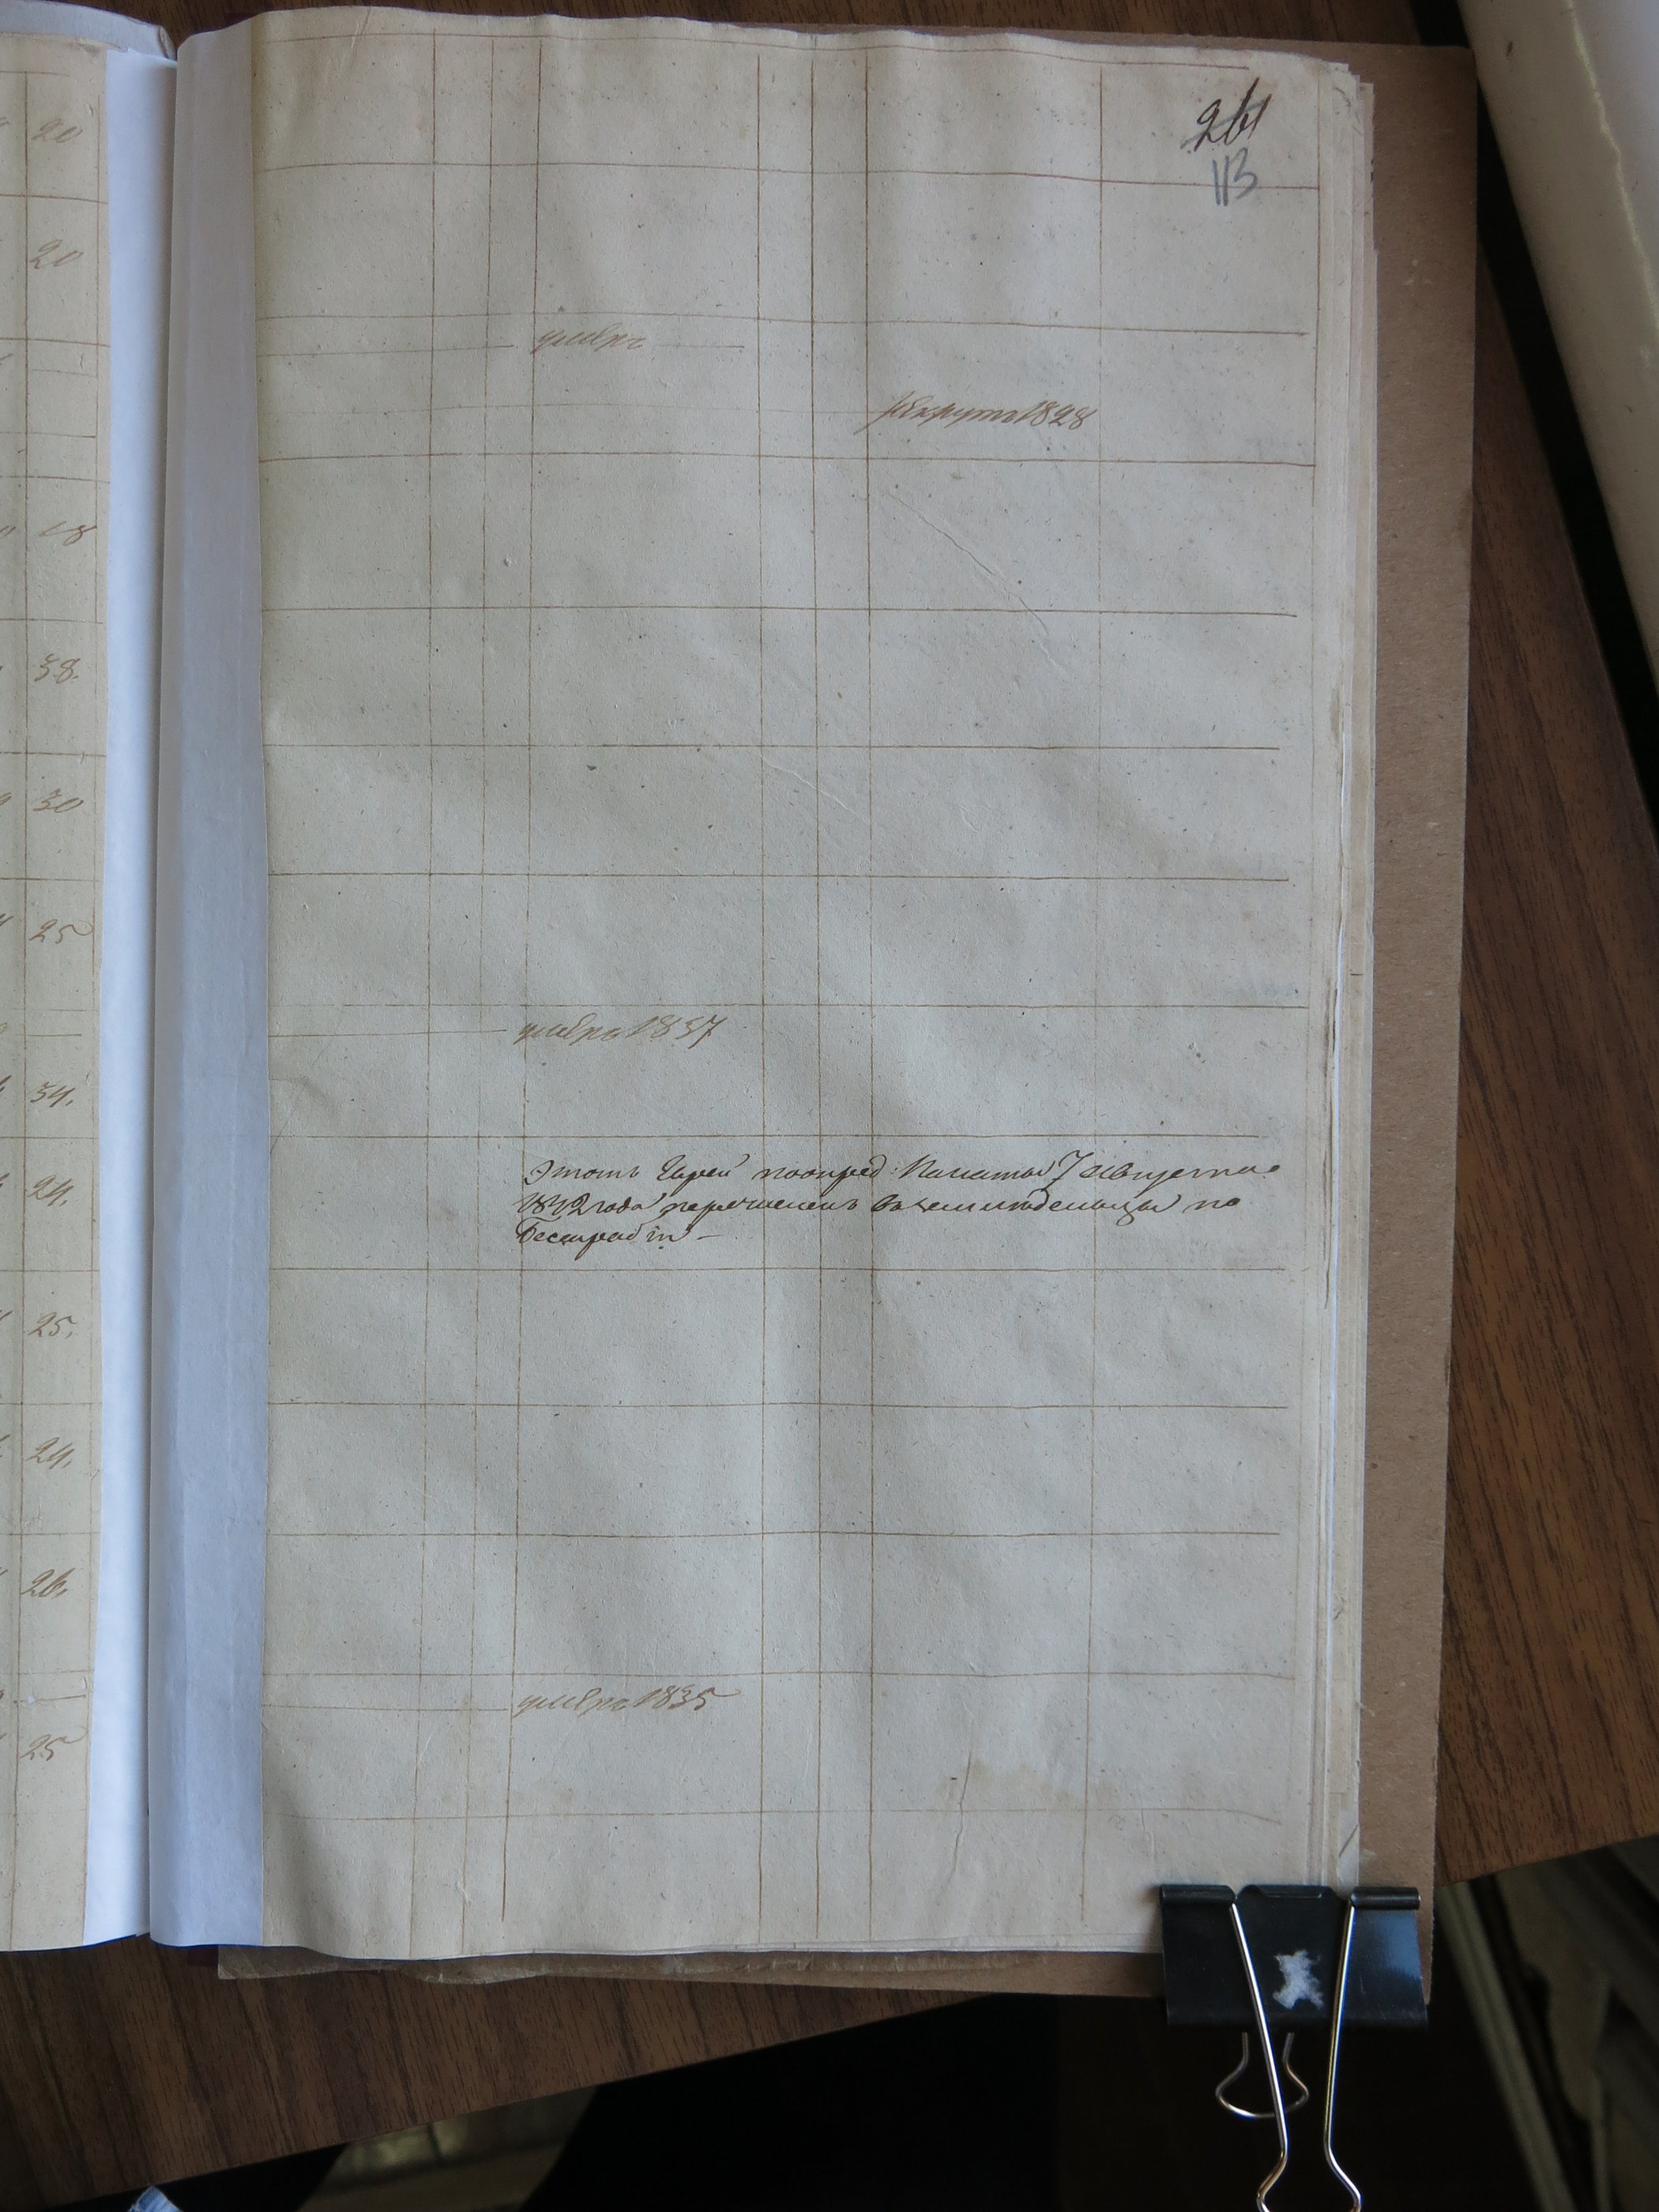 20
261
113
20
умеръ
рекрутъ 1828
18
38.
30
25
умеръ 1837
34.
Этотъ Еврей по опред: Палаты 7 Августа
24. 1842 года перечисленъ въ земледельцы по
Бессарабіи —
25.
24.
26.
умеръ 1835
25